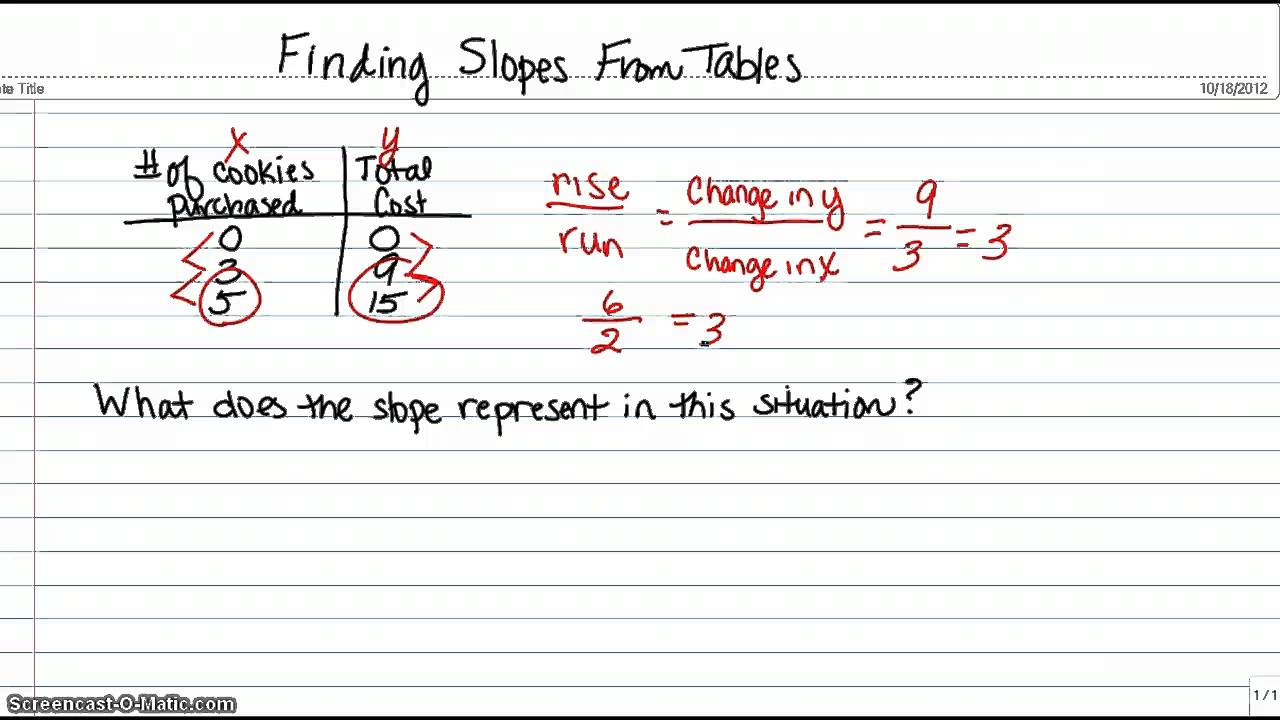 Finding Slopes From Tables
te Title
10/18/2012
x y
# of cookies Total
purchased Cost
0 0
3 9
5 15
rise = change in y = 9 = 3
run change in x 3
6 = 3
2
What does the slope represent in this situation?
Screencast-O-Matic.com
1/1